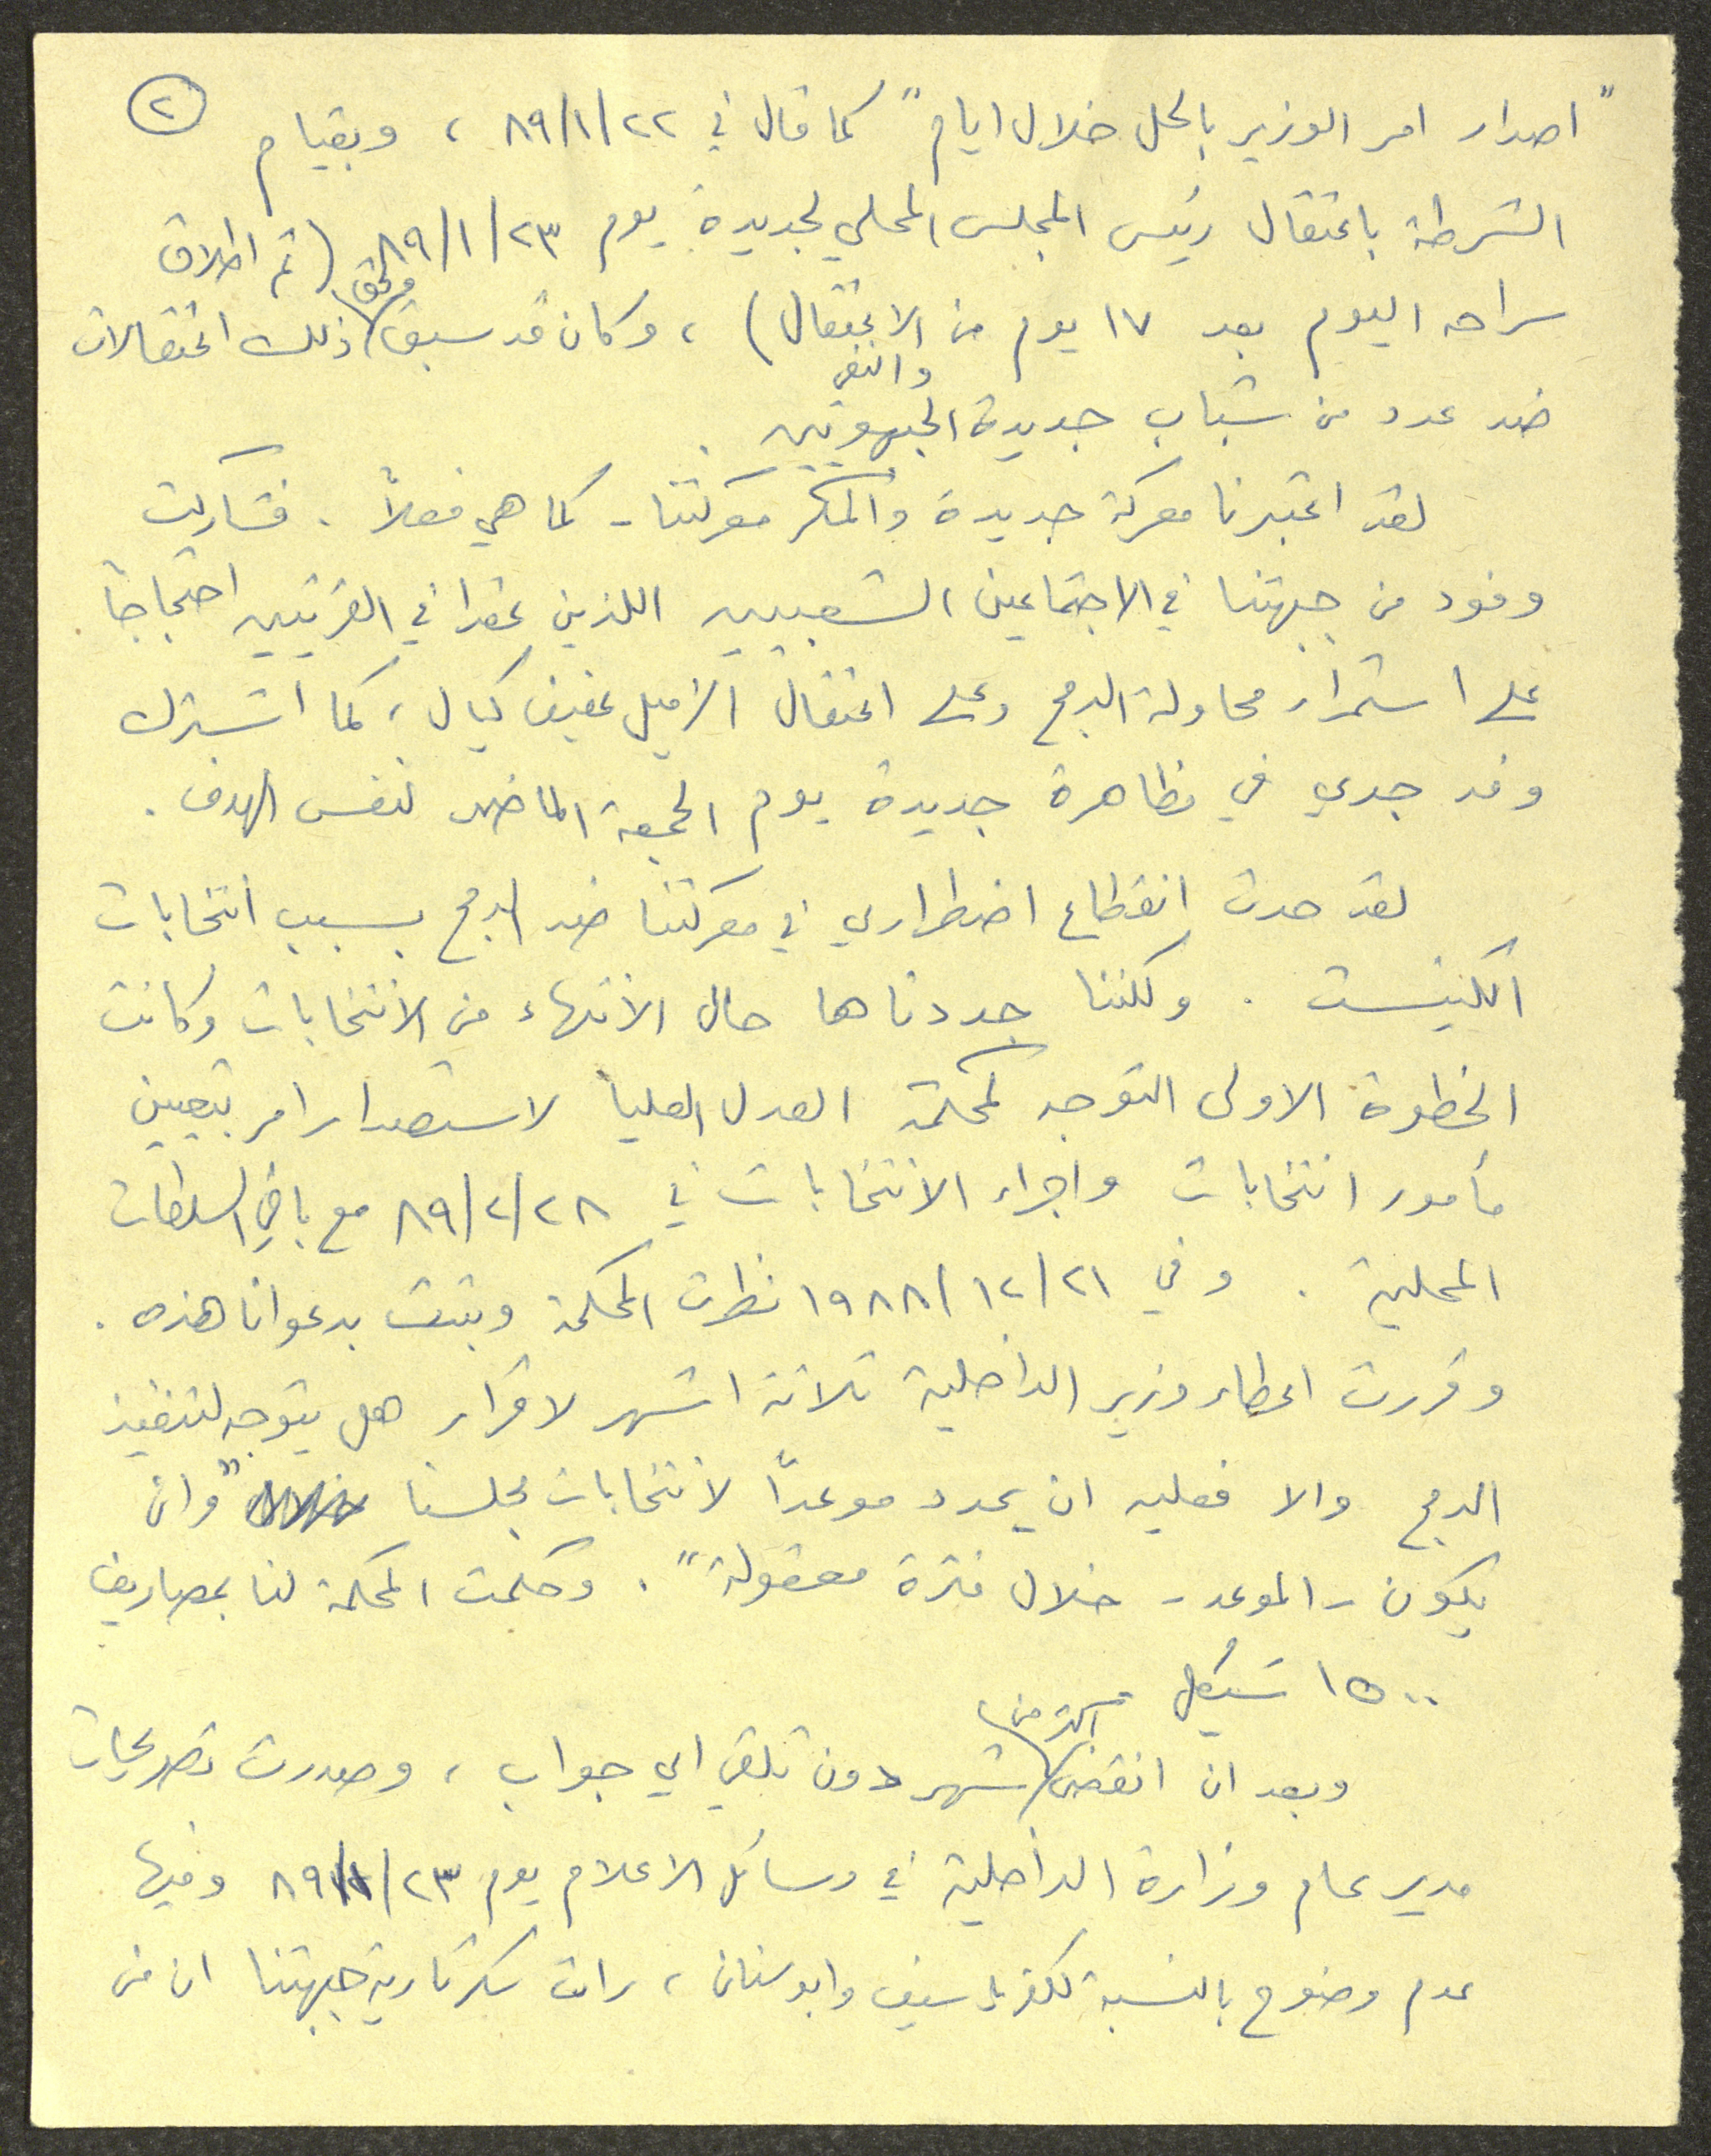 ٢
"اصدار امر الوزير بالحل خلال ايام" كما قال في ٨٩/١/٢٢ ، وبقيام
الشرطة باعتقال رئيس المجلس المحلي لجديدة يوم ٨٩/١/٢٣ (تم اطلاق
سراحه اليوم بعد ١٧ يوم من الاعتقال) ، وكان قد سبق ذلك اعتقالات
ضد عدد من شباب جديدة الجبهويين .
لقد اعتبرنا معركة جديدة والمكر معركتنا - كما هي فعلاً . فشاركت
وفود من جبهتنا في الاجتماعين الشعبيين اللذين عقدا في القريتين احتجاجاً
على استمرار محاولة الدمج وعلى اعتقال الزميل عفيف كيال ، كما اشترك
وفد جدي في مظاهرة جديدة يوم الجمعة الماضي لنفس الهدف .
لقد حدث انقطاع اضطراري في معركتنا ضد الدمج بسبب انتخابات
الكنيست . ولكننا جددناها حال الانتهاء من الانتخابات وكانت
الخطوة الاولى التوجه لمحكمة العدل العليا لاستصدار امر بتعيين
مأمور انتخابات واجراء الانتخابات في ٨٩/٢/٢٨ مع باقي السلطات
المحلية . وفي ١٩٨٨/١٢/٢١ نظرت المحكمة وبتت بدعوانا هذه .
وقررت اعطاء وزير الداخلية ثلاثة اشهر لاقرار هل يتوجه لتنفيذ
الدمج والا فعليه ان يحدد موعداً لانتخابات مجلسنا "وان
يكون - الموعد - خلال فترة معقولة" . وحكمت المحكمة لنا بمصاريف
١٥٠٠ شيكل
وبعد ان انقضى اكثر من شهر دون تلقي اي جواب ، وصدرت تصريحات
مدير عام وزارة الداخلية في وسائل الاعلام يوم ٨٩/١/٢٣ وفيها
عدم وضوح بالنسبة لكفر ياسيف وابوسنان ، رات سكرتارية جبهتنا ان من